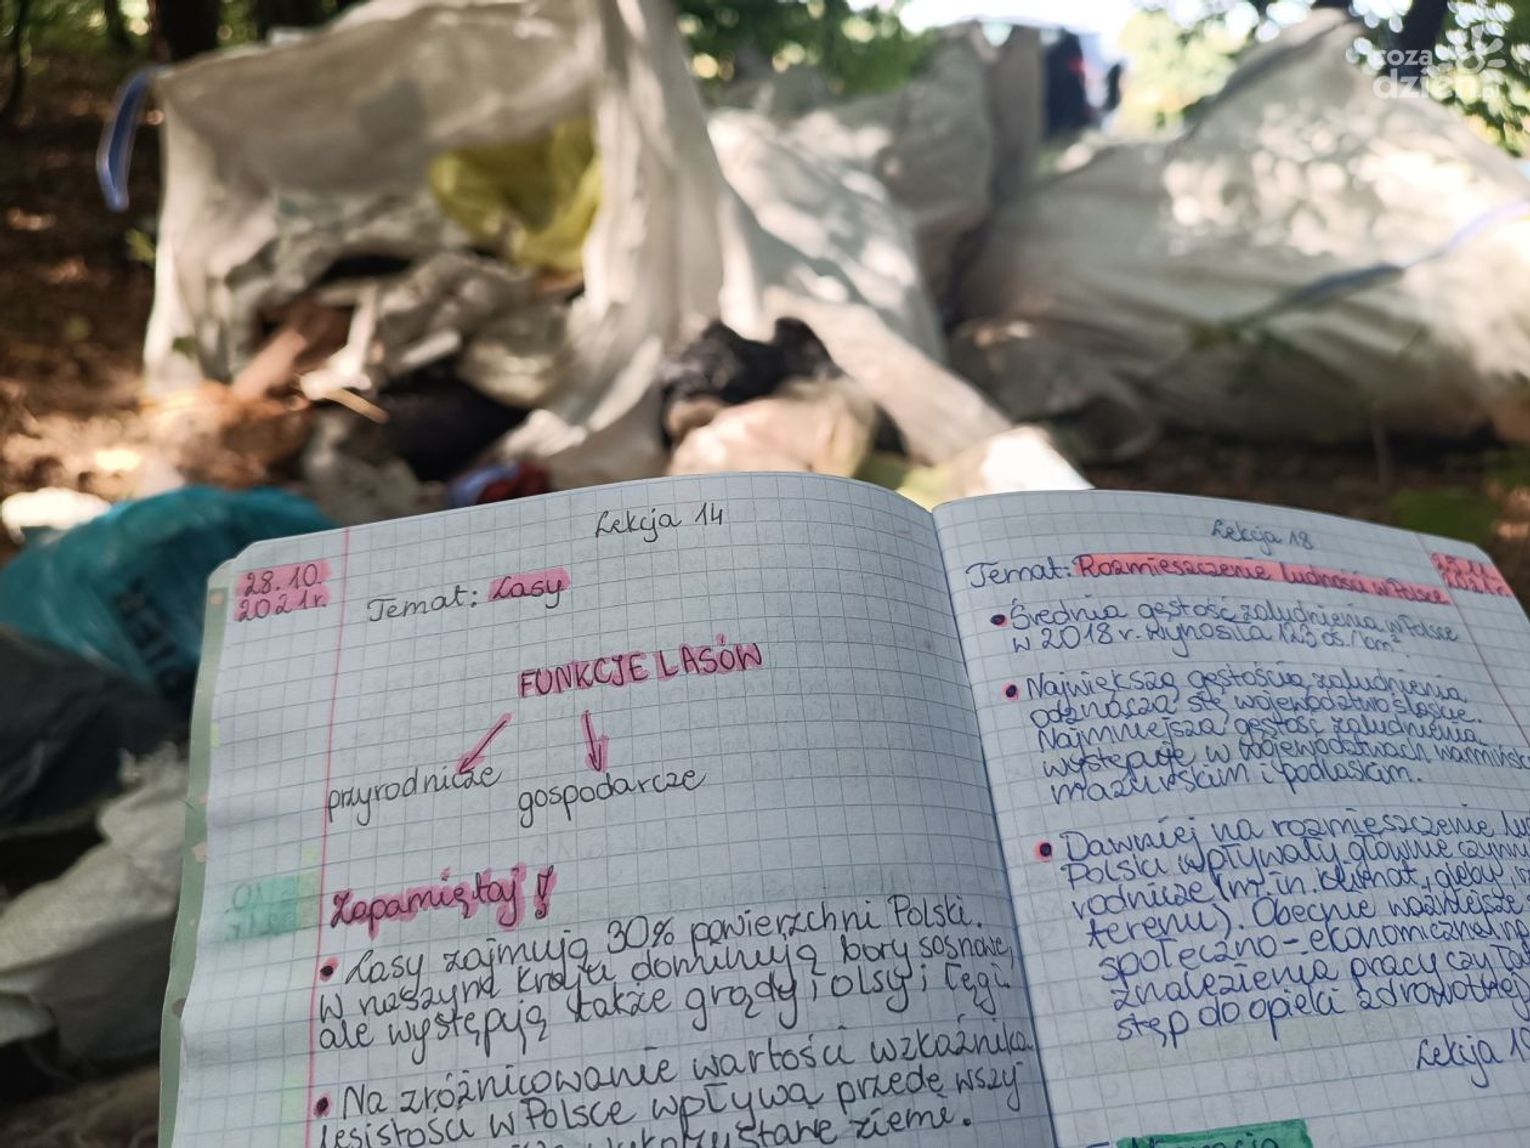 coza
dzień
Lekcja 14
28.10.
2021r.
Temat: Lasy
FUNKCJE LASÓW
przyrodnicze
gospodarcze
Zapamiętaj!
• Lasy zajmują 30% powierzchni Polski.
W naszym kraju dominują bory sosnowe,
ale występują także grądy, olsy i łęgi.
• Na zróżnicowanie wartości wzkaźnika
lesistości w Polsce wpływa przede wszy
ziemi.
Lekcja 18
Temat: Rozmieszczenie ludności w Polsce
2021r.
• Średnia gęstość zaludnienia w Polsce
w 2018 r. wynosiła 123 os./km²
• Największą gęstością zaludnienia
odznacza się województwo śląskie.
Najmniejsza gęstość zaludnienia
występuje w województwach warmińsko
mazurskim i podlaskim.
• Dawniej na rozmieszczenie lu
Polski wpływały głównie czynn
rodnicze (m.in. klimat, gleby,
terenu). Obecnie ważniejsze
społeczno-ekonomiczne, np.
znalezienia pracy czy
stęp do opieki zdrowotnej
Lekcja 19
Migracje